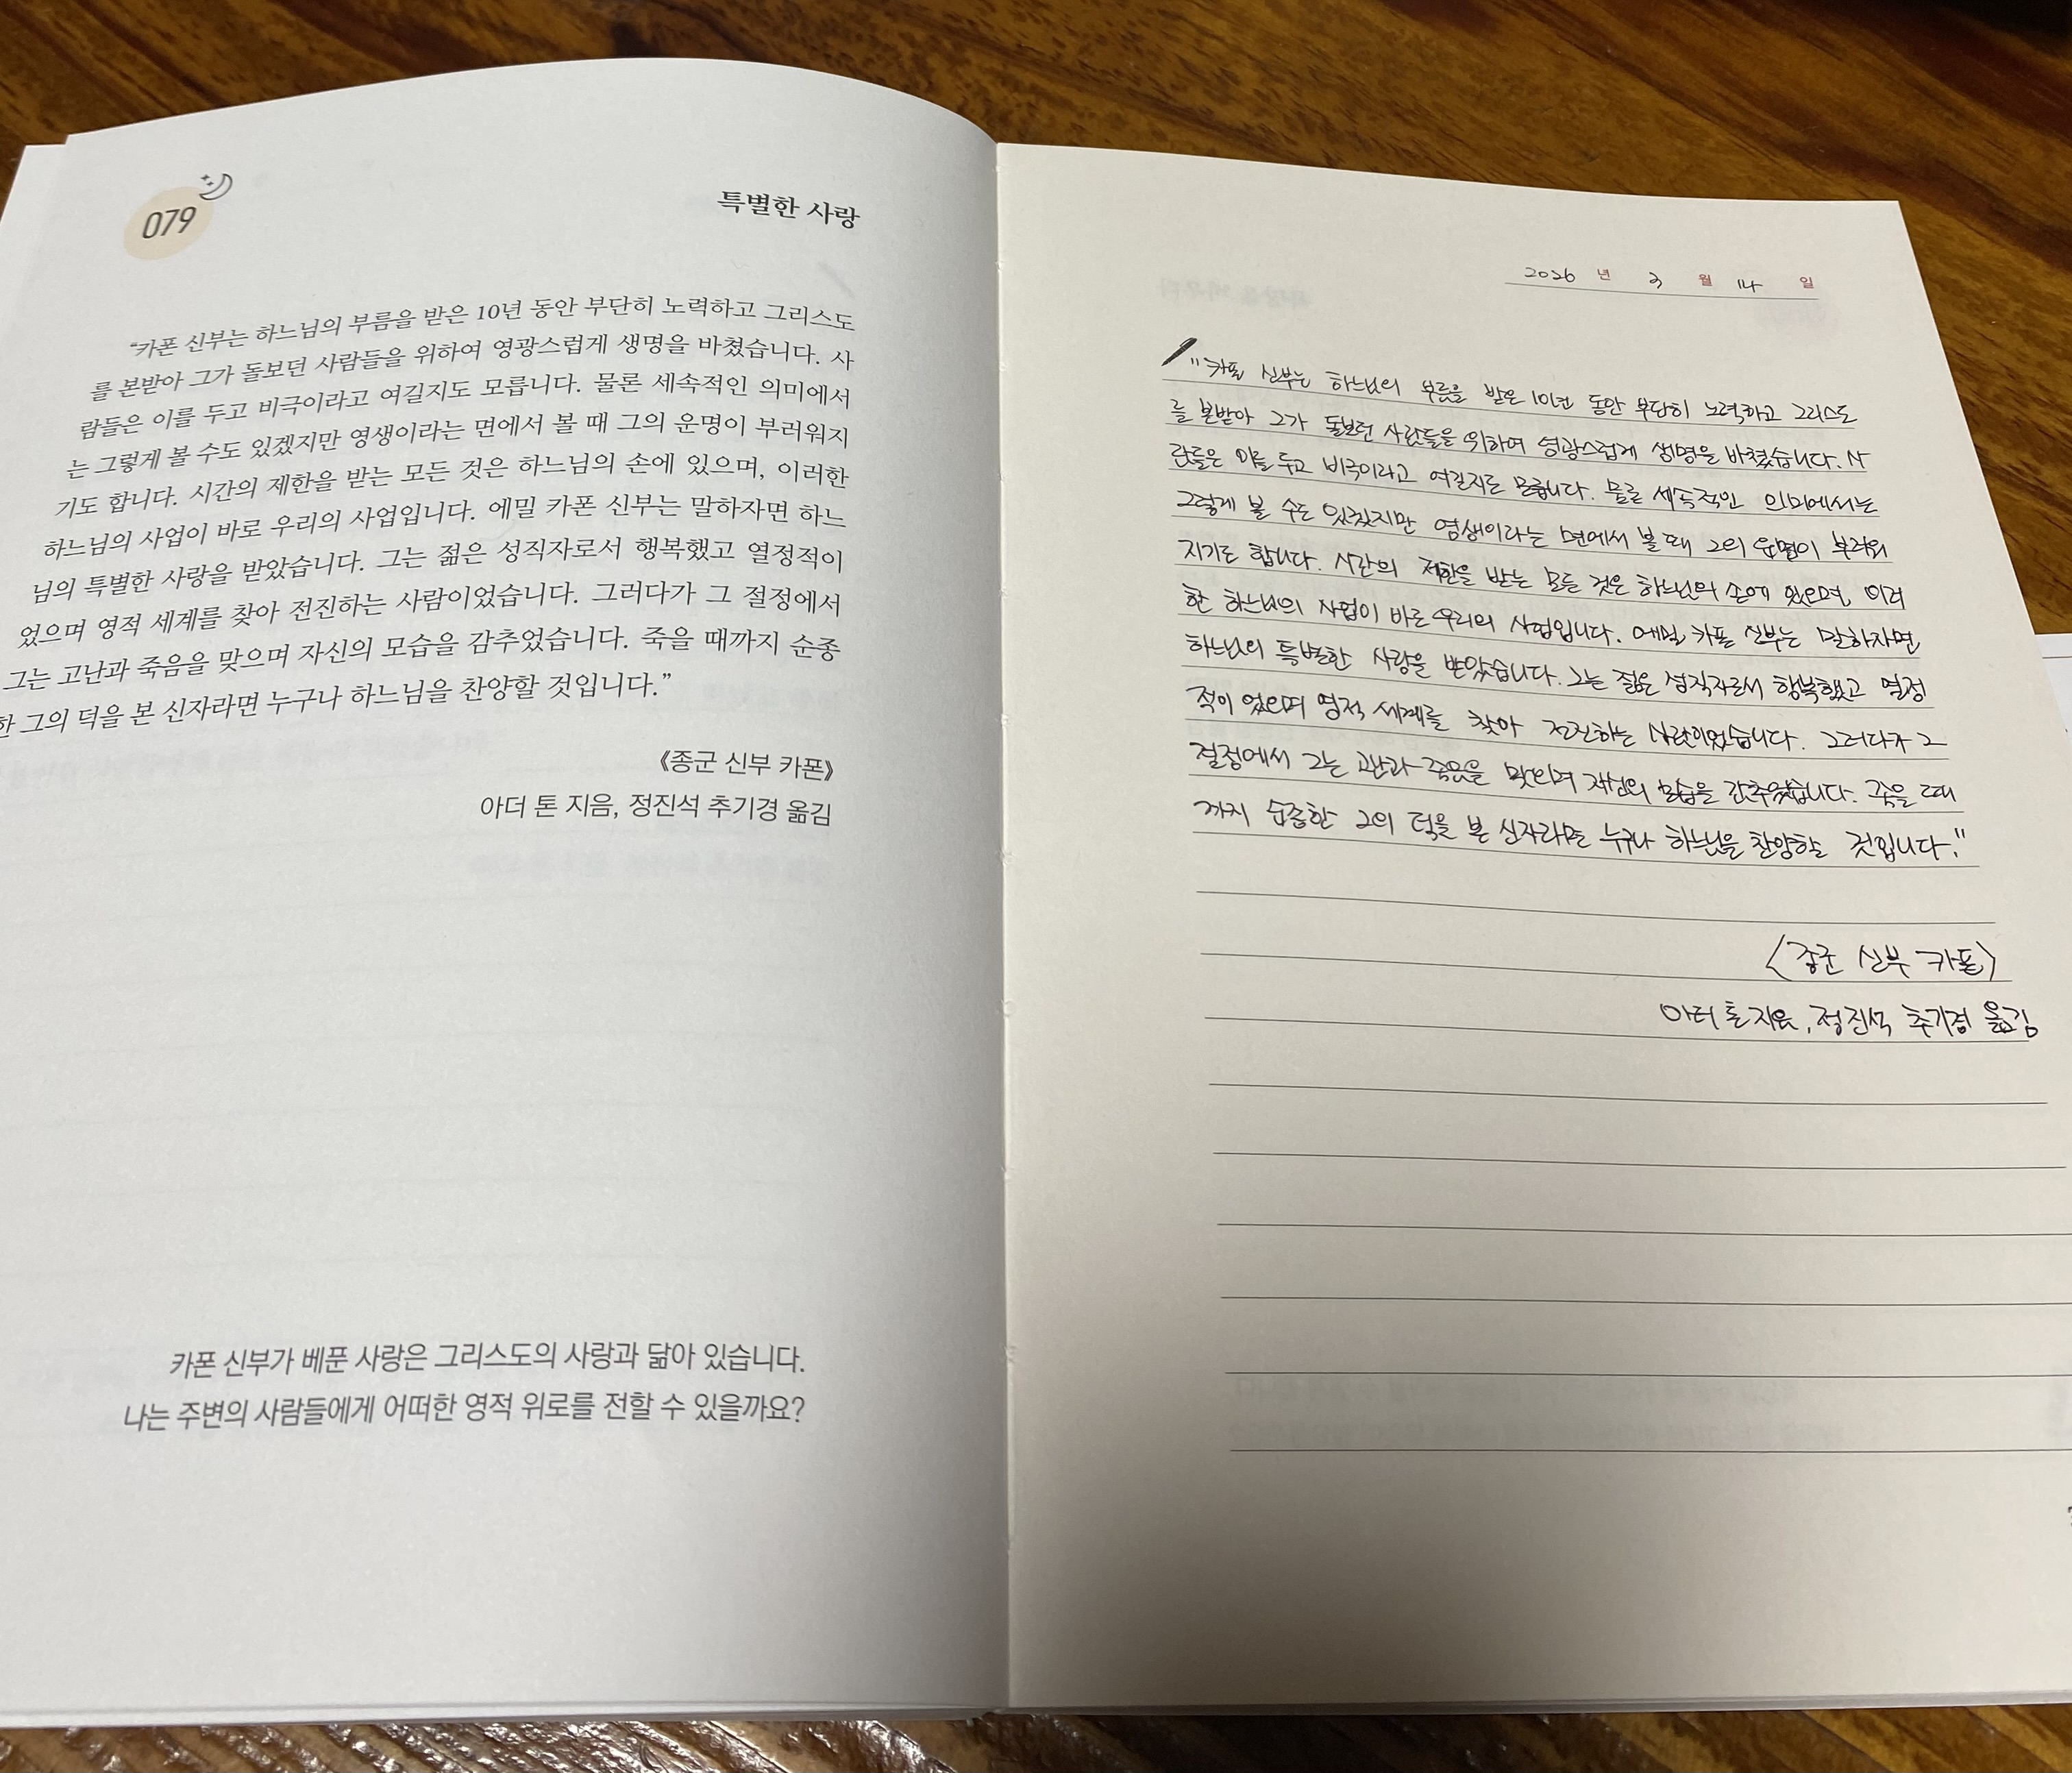 079
특별한 사랑
“카폰 신부는 하느님의 부름을 받은 10년 동안 부단히 노력하고 그리스도
를 본받아 그가 돌보던 사람들을 위하여 영광스럽게 생명을 바쳤습니다. 사
람들은 이를 두고 비극이라고 여길지도 모릅니다. 물론 세속적인 의미에서
는 그렇게 볼 수도 있겠지만 영생이라는 면에서 볼 때 그의 운명이 부러워지
기도 합니다. 시간의 제한을 받는 모든 것은 하느님의 손에 있으며, 이러한
하느님의 사업이 바로 우리의 사업입니다. 에밀 카폰 신부는 말하자면 하느
님의 특별한 사랑을 받았습니다. 그는 젊은 성직자로서 행복했고 열정적이
었으며 영적 세계를 찾아 전진하는 사람이었습니다. 그러다가 그 절정에서
그는 고난과 죽음을 맞으며 자신의 모습을 감추었습니다. 죽을 때까지 순종
한 그의 덕을 본 신자라면 누구나 하느님을 찬양할 것입니다.”
《종군 신부 카폰》
아더 톤 지음, 정진석 추기경 옮김
카폰 신부가 베푼 사랑은 그리스도의 사랑과 닮아 있습니다.
나는 주변의 사람들에게 어떠한 영적 위로를 전할 수 있을까요?
2026 년 3 월 14 일
"카폰 신부는 하느님의 부름을 받은 10년 동안 부단히 노력하고 그리스도
를 본받아 그가 돌보던 사람들을 위하여 영광스럽게 생명을 바쳤습니다. 사
람들은 이를 두고 비극이라고 여길지도 모릅니다. 물론 세속적인 의미에서는
그렇게 볼 수도 있겠지만 영생이라는 면에서 볼 때 그의 운명이 부러워
지기도 합니다. 시간의 제한을 받는 모든 것은 하느님의 손에 있으며, 이러
한 하느님의 사업이 바로 우리의 사업입니다. 에밀 카폰 신부는 말하자면
하느님의 특별한 사랑을 받았습니다. 그는 젊은 성직자로서 행복했고 열정
적이었으며 영적 세계를 찾아 전진하는 사람이었습니다. 그러다가 그
절정에서 그는 고난과 죽음을 맞으며 자신의 모습을 감추었습니다. 죽을 때
까지 순종한 그의 덕을 본 신자라면 누구나 하느님을 찬양할 것입니다."
〈종군 신부 카폰〉
아더 톤 지음, 정진석 추기경 옮김